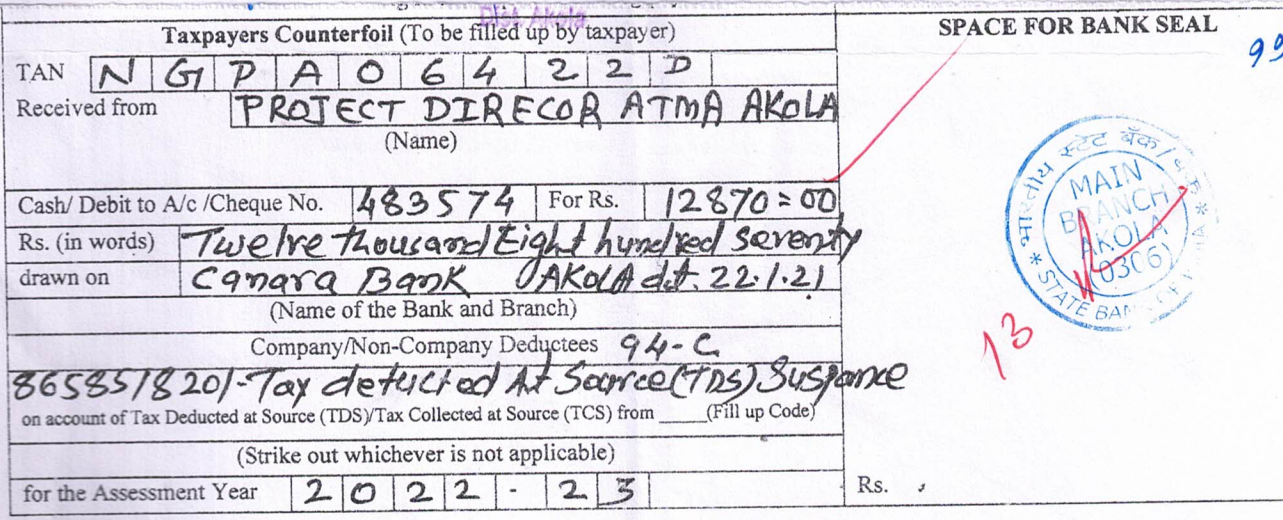 Dist. Akola
Taxpayers Counterfoil (To be filled up by taxpayer)
SPACE FOR BANK SEAL
99
TAN N G P A 0 6 4 2 2 D
Received from PROJECT DIRECOR ATMA AKOLA
(Name)
Cash/ Debit to A/c /Cheque No. 483574 For Rs. 12870=00
Rs. (in words) Twelve thousand Eight hundred seventy
drawn on Canara Bank AKOLA dt. 22.1.21
(Name of the Bank and Branch)
Company/Non-Company Deductees 94-C
8658518201-Tax deducted At Source(TDS) Suspance
on account of Tax Deducted at Source (TDS)/Tax Collected at Source (TCS) from ____(Fill up Code)
(Strike out whichever is not applicable)
for the Assessment Year 2 0 2 2 - 2 3
भारतीय स्टेट बँक
MAIN
BRANCH
AKOLA
(0306)
STATE BANK OF
13
Rs.